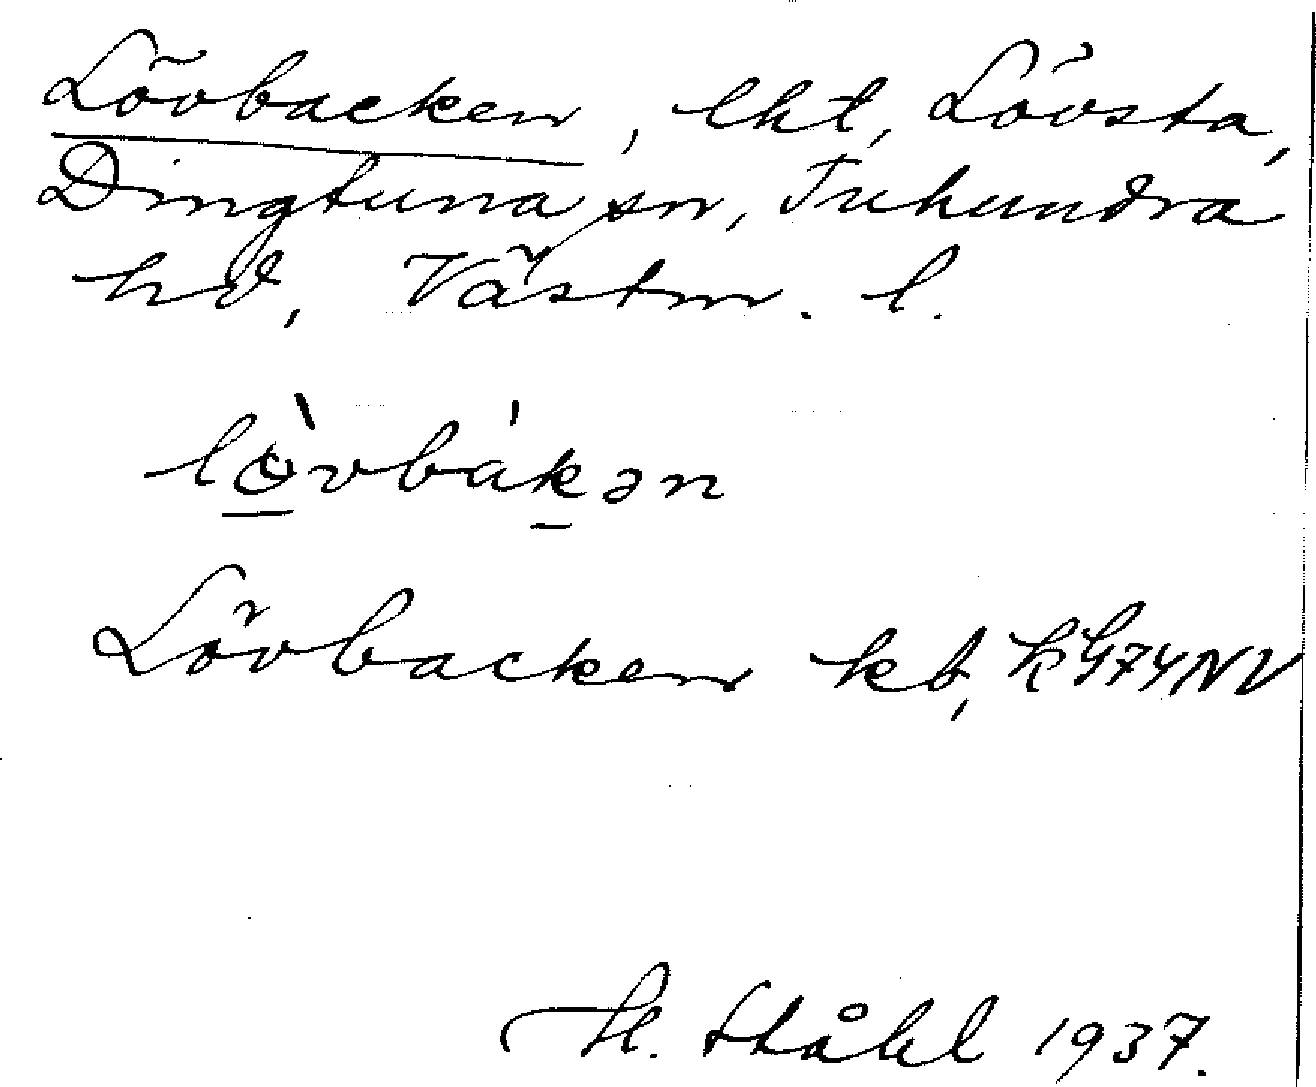 Lövbacken, lht, Lövsta,
Dingtuna sn, Tuhundra
hd, Västm. l.
lö̀vbákən
Lövbacken kt,
H. Ståhl 1937.